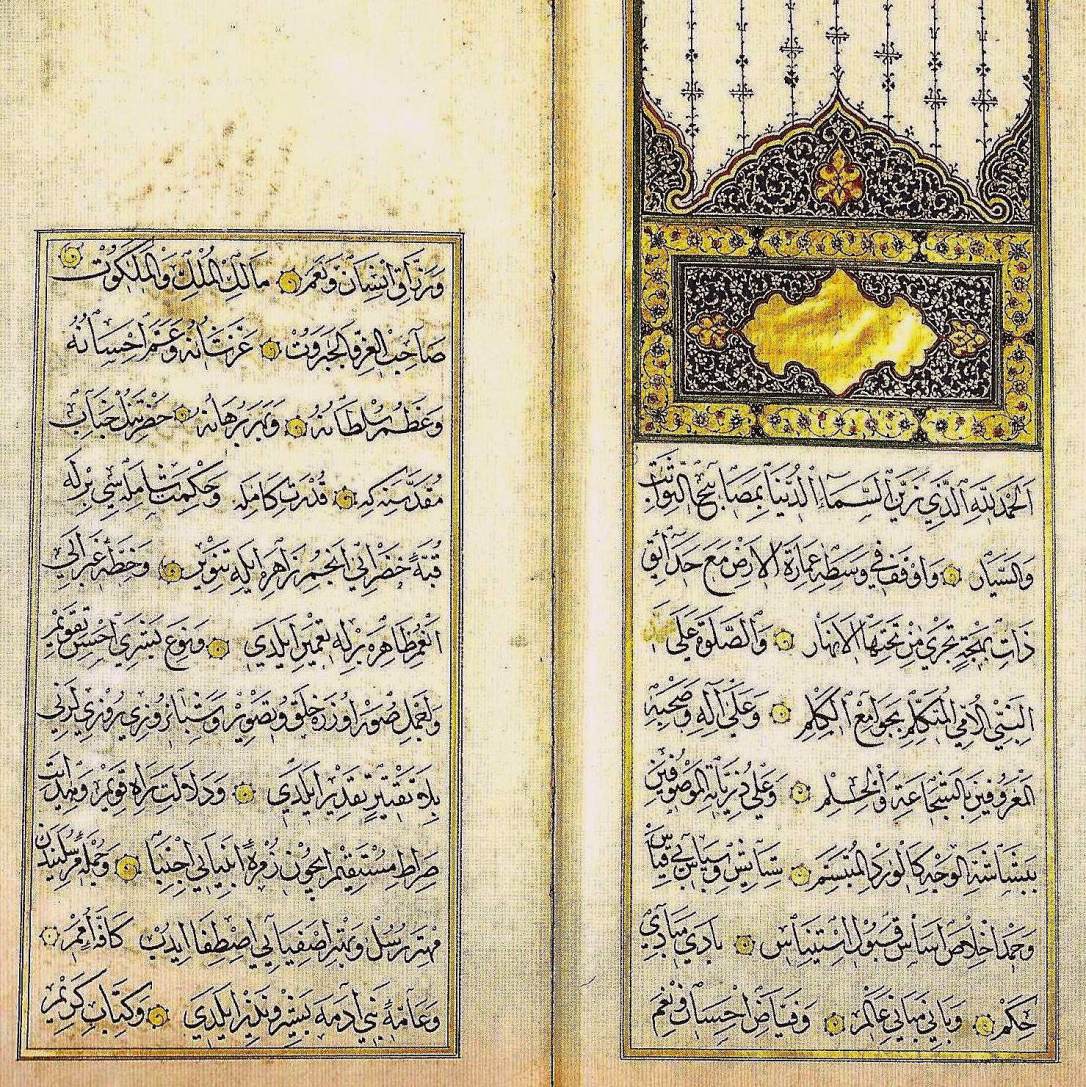 اَلْحَمْدُ لِلّٰهِ الَّذِي زَيَّنَ السَّمَاءَ الدُّنْيَا بِمَصَابِيحِ الثَّوَابِتِ
وَالسَّيَّارِ وَاَوْقَفَ فِي وَسَطِهِ عِمَارَةَ الْاَرْضِ مَعَ حَدَآئِقَ
ذَاتِ بَهْجَةٍ تَجْرِي مِنْ تَحْتِهَا الْاَنْهَارُ وَالصَّلٰوةُ عَلَى مُحَمَّدٍ
النَّبِيِّ الْاُمِّيِّ الْمُتَكَلِّمِ بِجَوَامِعِ الْكَلِمِ وَعَلَى آلِهِ وَصَحْبِهِ
الْمَعْرُوفِينَ بِالشَّجَاعَةِ وَالْحِلْمِ وَعَلَى ذُرِّيَّاتِهِ الْمَوْصُوفِينَ
بِبَشَاشَةِ الْوَجْهِ كَالْوَرْدِ الْمُبْتَسِمِ سِتَايِشْ وَسِپَاسِ بِي قِيَاسْ
وَحَمْدِ اِخْلَاصْ اَسَاسِ قَبُولِ اسْتِينَاسْ بَادِي مَبَادِي
حِكَمْ وَبَانِي مَبَانِي عَالَمْ وَفَيَّاضِ اِحْسَان وَنِعَمْ
وَرَزَّاقِ اِنْسَان وَنَعَمْ مَالِكِ الْمُلْكِ وَالْمَلَكُوتْ
صَاحِبِ الْعِزَّةِ وَالْجَبَرُوتْ عَزَّ شَانُهُ وَعَمَّ اِحْسَانُهُ
وَعَظُمَ سُلْطَانُهُ وَبَهَرَ بُرْهَانُهُ حَضْرَتْلَرِينِكْ جَنَابِ
مُقَدَّسِنَه كِه قُدْرَتِ كَامِلَه وَحِكْمَتِ شَامِلَه سِي بِرْلَه
قُبَّۀِ خَضْرَايِي اَنْجُمِ زَاهِرَه اِيلَه تَنْوِيرْ وَخِطَّۀِ غَبْرَايِي
اَنْعُمِ ظَاهِرَه بِرْلَه تَعْمِيرْ اِيلَدِي وَنَوْعِ بَشَرِي اَحْسَنِ تَقْوِيمْ
وَاَجْمَلِ صُوَرْ اُوزَرَه خَلْقْ وَتَصْوِيرْ وَشَبَانَرُوزِي رُوزِيلَرِنِي
بِلَا تَقْتِيرْ تَقْدِيرْ اِيلَدِي وَدَلَالَتِ رَاهِ قَوِيمْ وَهِدَايَتِ
صِرَاطِ مُسْتَقِيمْ اِيچُونْ زُمْرَۀِ اَنْبِيَايِي اِجْتِبَا وَجُمْلَۀِ مُرْسَلِينْدَنْ
مِهْتَرِ رُسُلْ وَبِهْتَرِ اَصْفِيَايِي اِصْطِفَا اِيدُبْ كَافَّۀِ اُمَمْ
وَعَامَّۀِ بَنِي آدَمَه بَشِيرْ وَنَذِيرْ اِيلَدِي وَكِتَابِ كَرِيمْ